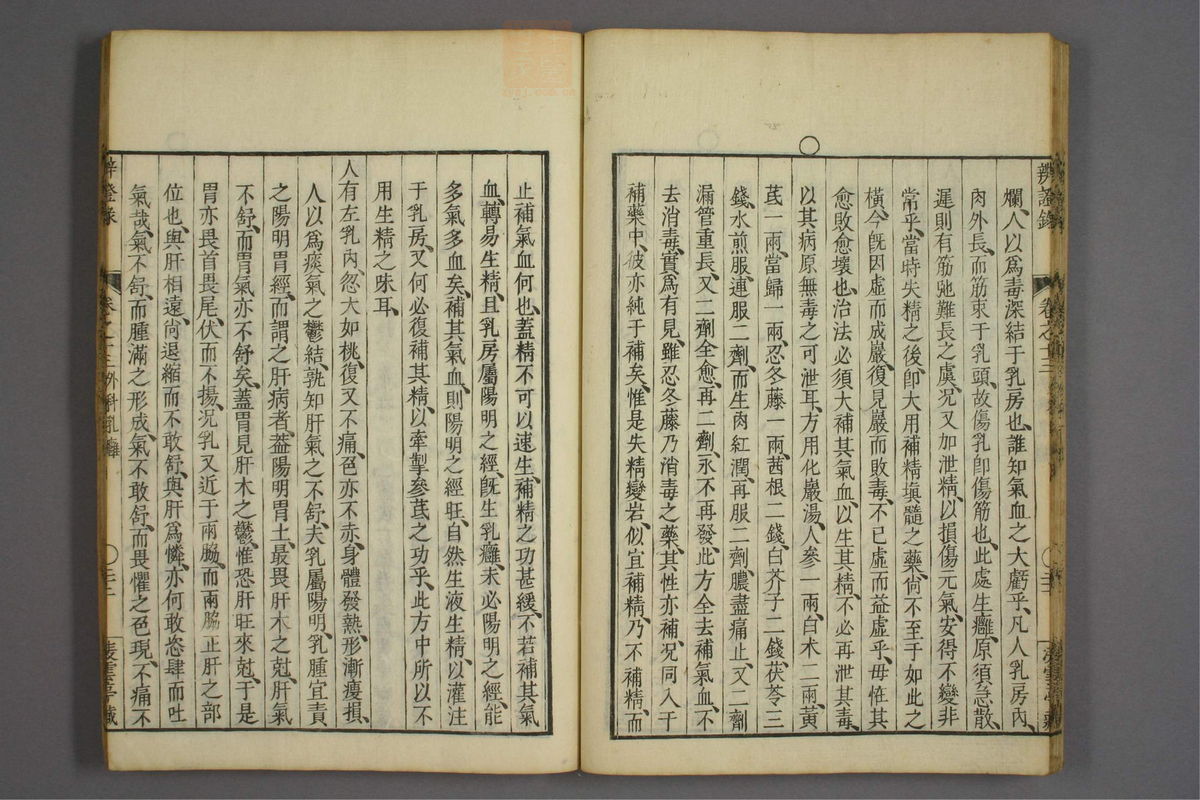 辨證錄 卷之十三
爛、人以爲毒深結于乳房也、誰知氣血之大虧乎、凡人乳房内、
肉外長、而筋束于乳頭、故傷乳卽傷筋也、此處生癰、原須急散、
遲則有筋弛難長之虞、况又加泄精、以損傷元氣、安得不變非
常乎、當時失精之後、卽大用補精塡髓之藥、尚不至于如此之
橫、今旣因虛而成巖、復見巖而敗毒、不已虛而益虛乎、毋恠其
愈敗愈壞也、治法必須大補其氣血、以生其精、不必再泄其毒、
以其病原無毒之可泄耳、方用化巖湯、人參一兩、白术二兩、黃
芪一兩、當歸一兩、忍冬藤一兩、茜根二錢、白芥子二錢、茯苓三
錢、水煎服、連服二劑、而生肉紅潤、再服二劑、膿盡痛止、又二劑
漏管重長、又二劑全愈、再二劑、永不再發、此方全去補氣血、不
去消毒、實爲有見、雖忍冬藤乃消毒之藥、其性亦補、况同入于
補藥中、彼亦純于補矣、惟是失精變岩、似宜補精、乃不補精、而
止補氣血何也、蓋精不可以速生、補精之功甚緩、不若補其氣
血、轉易生精、且乳房屬陽明之經、旣生乳癰、未必陽明之經、能
多氣多血矣、補其氣血、則陽明之經旺、自然生液生精、以灌注
于乳房、又何必復補其精、以牽掣參芪之功乎、此方中所以不
用生精之味耳、
人有左乳内、忽大如桃、復又不痛、色亦不赤、身體發熱、形漸瘦損、
人以爲痰氣之鬱結、孰知肝氣之不舒、夫乳屬陽明、乳腫宜責
之陽明胃經、而謂之肝病者、葢陽明胃土、最畏肝木之尅、肝氣
不舒、而胃氣亦不舒矣、蓋胃見肝木之鬱、惟恐肝旺來尅、于是
胃亦畏首畏尾、伏而不揚、况乳又近于兩脇、而兩脇正肝之部
位也、與肝相遠、尙退縮而不敢舒、與肝爲憐、亦何敢恣肆而吐
氣哉、氣不舒、而腫滿之形成、氣不敢舒、而畏懼之色現、不痛不
卷之十三 外科 乳癰